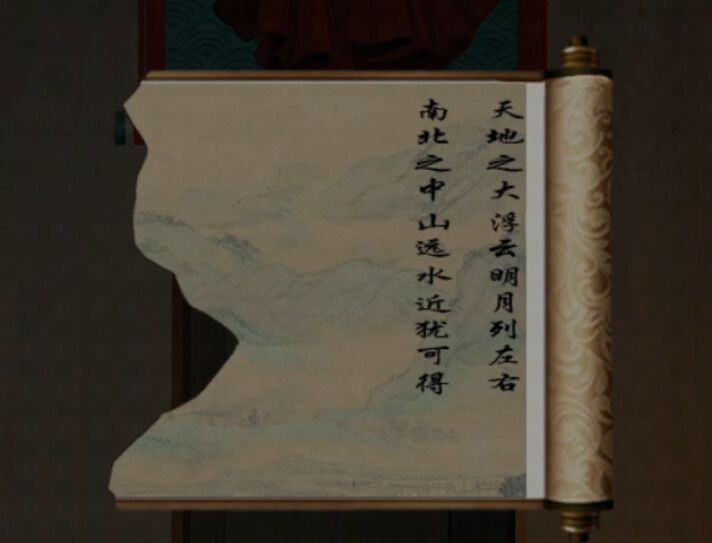 天地之大浮云明月列左右
南北之中山远水近犹可得